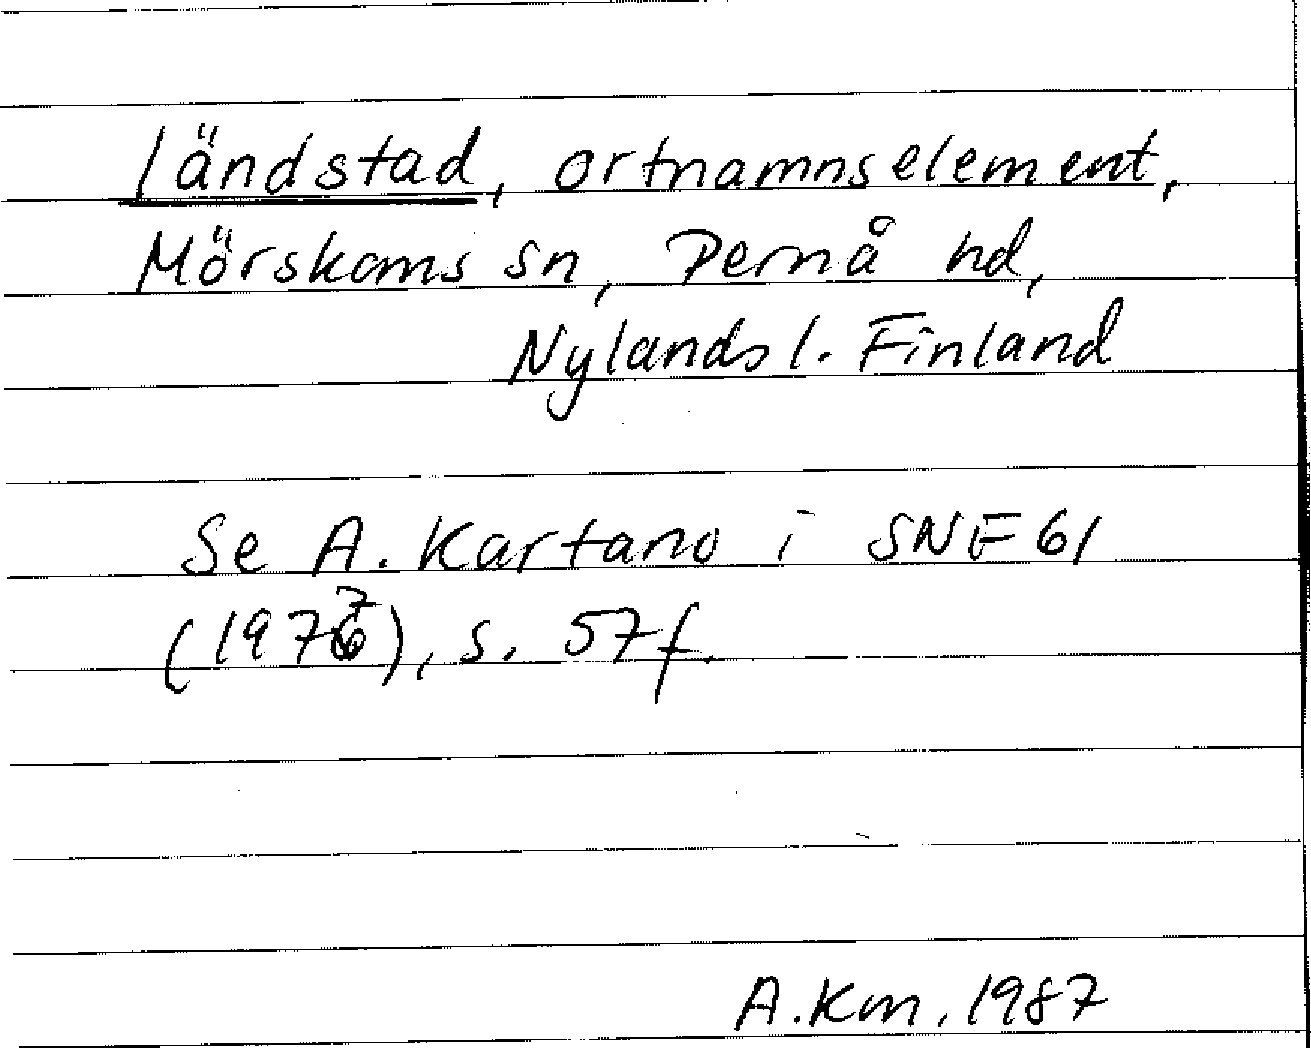 ländstad, ortnamnselement,
Mörskoms sn, Pernå hd,
Nylands l. Finland
Se A. Kartano i SNF 61
(1977), s. 57 f.
A.Km. 1987